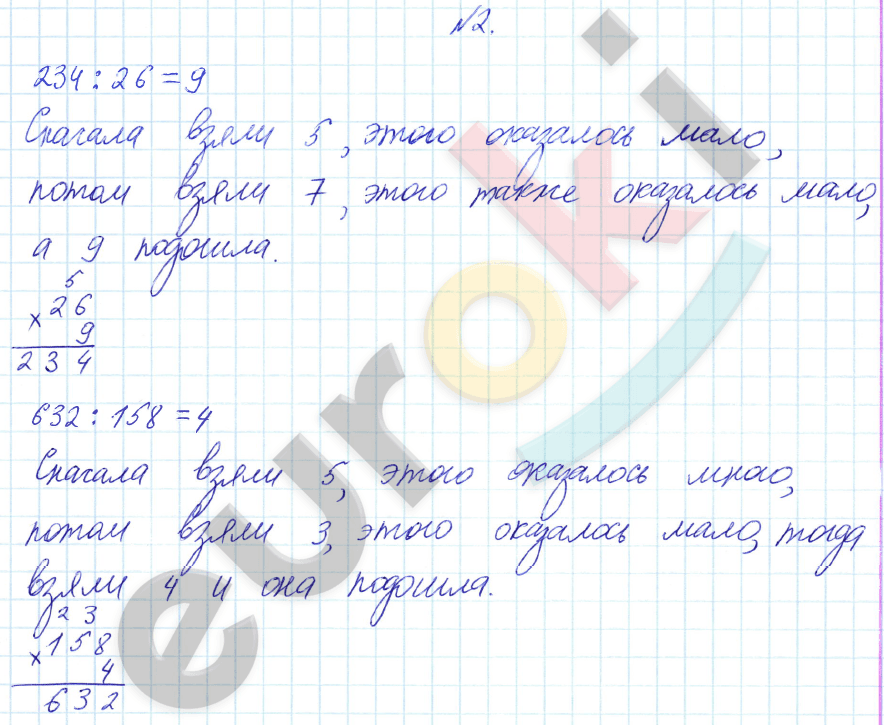 №2.
234 : 26 = 9
Сначала взяли 5, этого оказалось мало,
потом взяли 7, этого также оказалось мало,
а 9 подошла.
5
× 26
9
234
632 : 158 = 4
Сначала взяли 5, этого оказалось много,
потом взяли 3, этого оказалось мало, тогда
взяли 4 и она подошла.
2 3
× 158
4
632
euroki